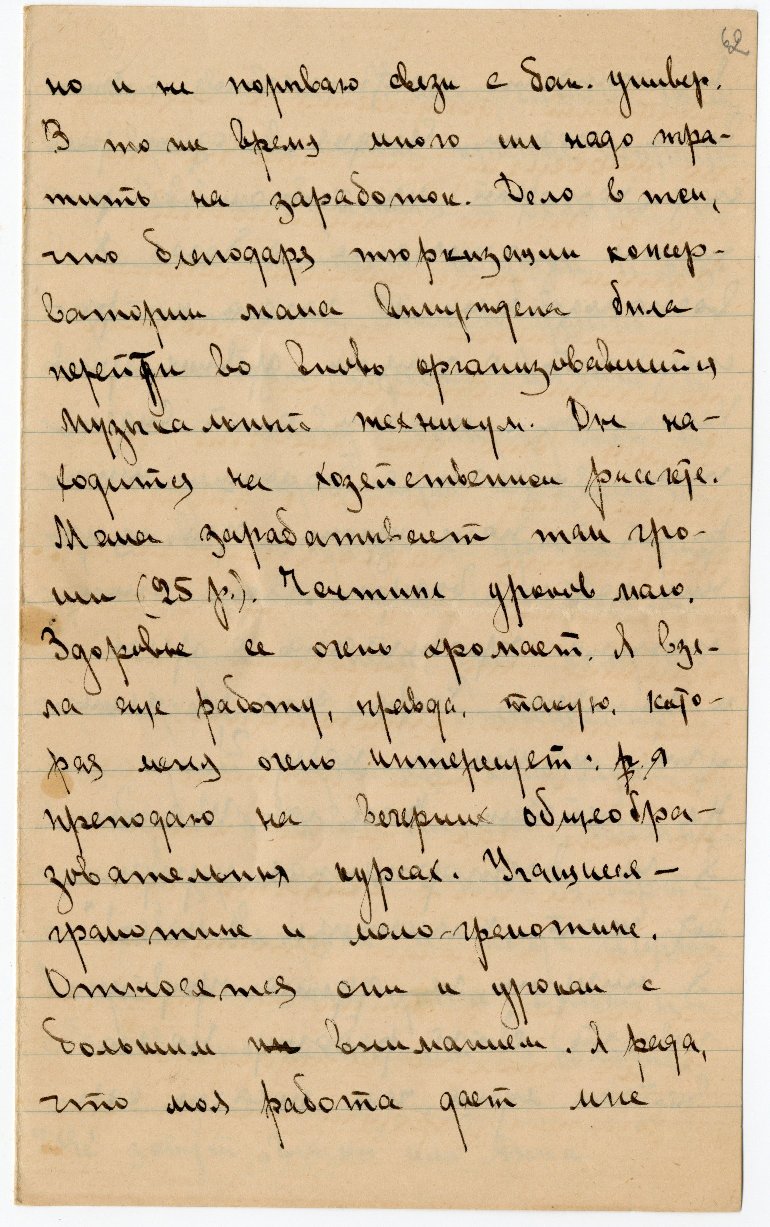 62
но и не порываю связи с бак. универ.
В то же время много сил надо тра-
тить на заработок. Дело в том,
что благодаря тюркизации консер-
ватории мама вынуждена была
перейти во вновь организовавшийся
музыкальный техникум. Он на-
ходится на хозяйственном рассчете.
Мама зарабатывает там гро-
ши (25 р.). Частных уроков мало.
Здоровье ее очень хромает. Я взя-
ла еще работу, правда, такую, кото-
рая меня очень интересует: я
преподаю на вечерних общеобра-
зовательных курсах. Учащиеся –
грамотные и мало-грамотные.
Относятся они к урокам с
большим вниманием. Я рада,
что моя работа дает мне